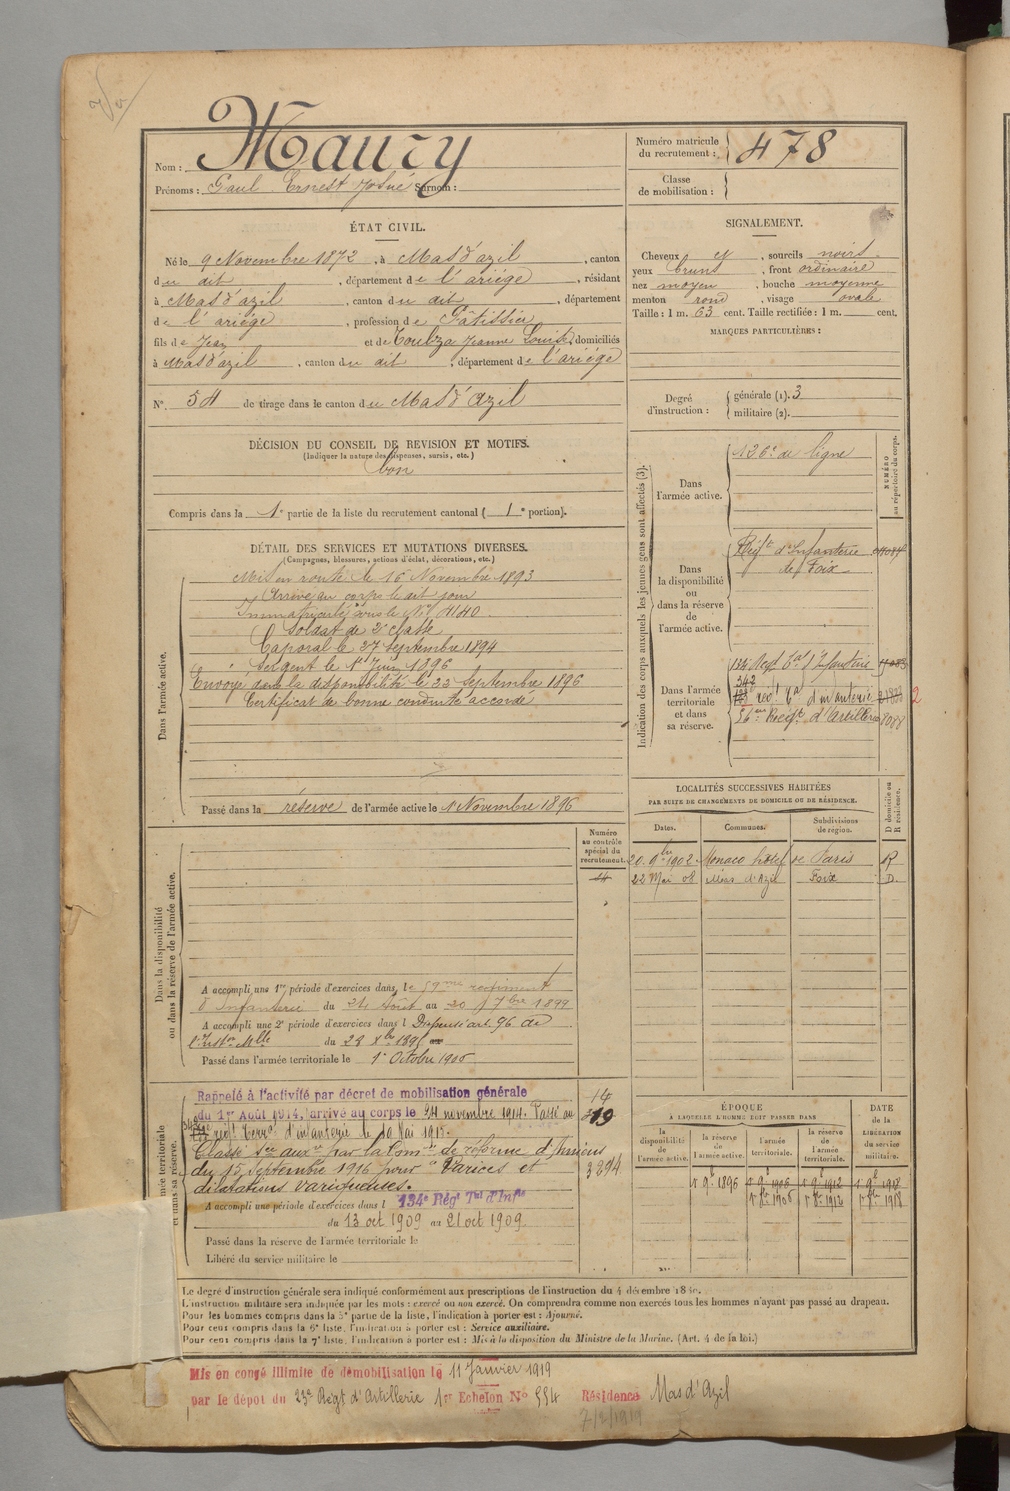 Nom : Maury
Prénoms : Paul Ernest Josué Surnom :
Numéro matricule
du recrutement : 478
Classe
de mobilisation :
ÉTAT CIVIL.
Né le 9 Novembre 1872, à Mas d'azil, canton
du dit, département de l'ariège, résidant
à Mas d'azil, canton du dit, département
de l'ariège, profession de Pâtissier
fils de Jean et de Toulza Jeanne Louise, domiciliés
à Mas d'azil, canton du dit, département de l'ariège
N° 54 de tirage dans le canton du Mas d'Azil
SIGNALEMENT.
Cheveux et, sourcils noirs
yeux bruns, front ordinaire
nez moyen, bouche moyenne
menton rond, visage ovale
Taille : 1 m. 63 cent. Taille rectifiée : 1 m. cent.
MARQUES PARTICULIÈRES :
Degré
d'instruction :
générale (1). 3
militaire (2).
DÉCISION DU CONSEIL DE REVISION ET MOTIFS.
(Indiquer la nature des dispenses, sursis, etc.)
bon
Compris dans la 1e partie de la liste du recrutement cantonal ( 1e portion).
DÉTAIL DES SERVICES ET MUTATIONS DIVERSES.
(Campagnes, blessures, actions d'éclat, décorations, etc.)
Dans l'armée active.
Mis en route le 16 Novembre 1893
Arrivé au corps le dit jour
Immatriculé sous le N° 4140
Soldat de 2e classe
Caporal le 27 Septembre 1894
Sergent le 1er Juin 1896
Envoyé dans la disponibilité le 23 Septembre 1896
Certificat de bonne conduite accordé
Passé dans la réserve de l'armée active le 1 Novembre 1896
Indication des corps auxquels les jeunes gens sont affectés (3).
NUMÉRO
au répertoire du corps.
Dans
l'armée active.
136e de ligne
Dans
la disponibilité
ou
dans la réserve
de
l'armée active.
Régt d'Infanterie
de Foix
Dans l'armée
territoriale
et dans
sa réserve.
134e Régt Tal d'Infanterie
342
régt Tal d'infanterie 2
56me Régt d'Artillerie 8088
LOCALITÉS SUCCESSIVES HABITÉES
PAR SUITE DE CHANGEMENTS DE DOMICILE OU DE RÉSIDENCE.
Dates.
Communes.
Subdivisions
de région.
D domicile ou
R résidence.
20 9bre 1902 Monaco hôtel de Paris R
22 Mai 08 Mas d'Azil Foix D.
Dans la disponibilité
ou dans la réserve de l'armée active.
Numéro
au contrôle
spécial du
recrutement.
14
A accompli une 1re période d'exercices dans le 59me régiment
d'Infanterie du 24 Août au 20 7bre 1899
A accompli une 2e période d'exercices dans l Dispensé art. 96 de
l'Iston Mlle du 28 Xbre 1895 au
Passé dans l'armée territoriale le 1er Octobre 1906
Rappelé à l'activité par décret de mobilisation générale
du 1er Août 1914, arrivé au corps le 24 novembre 1914. Passé au
régt Terral d'infanterie le 10 Mai 1915.
Classé Sce auxre par la Comon de réforme d'Amiens
du 15 Septembre 1916 pour "Varices et
dilatations variqueuses.
14
19
3294
A accompli une période d'exercices dans l 134e Régt Tal d'Infie
du 13 oct 1909 au 21 oct 1909
Passé dans la réserve de l'armée territoriale le
Libéré du service militaire le
ÉPOQUE
À LAQUELLE L'HOMME DOIT PASSER DANS
DATE
de la
LIBÉRATION
du service
militaire.
la
disponibilité
de
l'armée active.
la réserve
de
l'armée active.
l'armée
territoriale.
la réserve
de
l'armée
territoriale.
1er 9bre 1896 1er 9bre 1906 1er 9bre 1912 1er 9bre 1918
1er 8bre 1906 1er 8bre 1912 1er 8bre 1918
Le degré d'instruction générale sera indiqué conformément aux prescriptions de l'instruction du 4 décembre 1889.
L'instruction militaire sera indiquée par les mots : exercé ou non exercé. On comprendra comme non exercés tous les hommes n'ayant pas passé au drapeau.
Pour les hommes compris dans la 5e partie de la liste, l'indication à porter est : Ajourné.
Pour ceux compris dans la 6e liste, l'indication à porter est : Service auxiliaire.
Pour ceux compris dans la 7e liste, l'indication à porter est : Mis à la disposition du Ministre de la Marine. (Art. 4 de la loi.)
Mis en congé illimité de démobilisation le 11 Janvier 1919
par le dépôt du 23e Régt d'Artillerie 1er Echelon N° 554 Résidence Mas d'Azil
7/2/1919